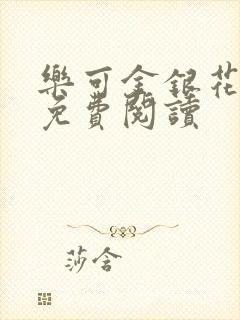 樂可金銀花
免費閱讀
莎含